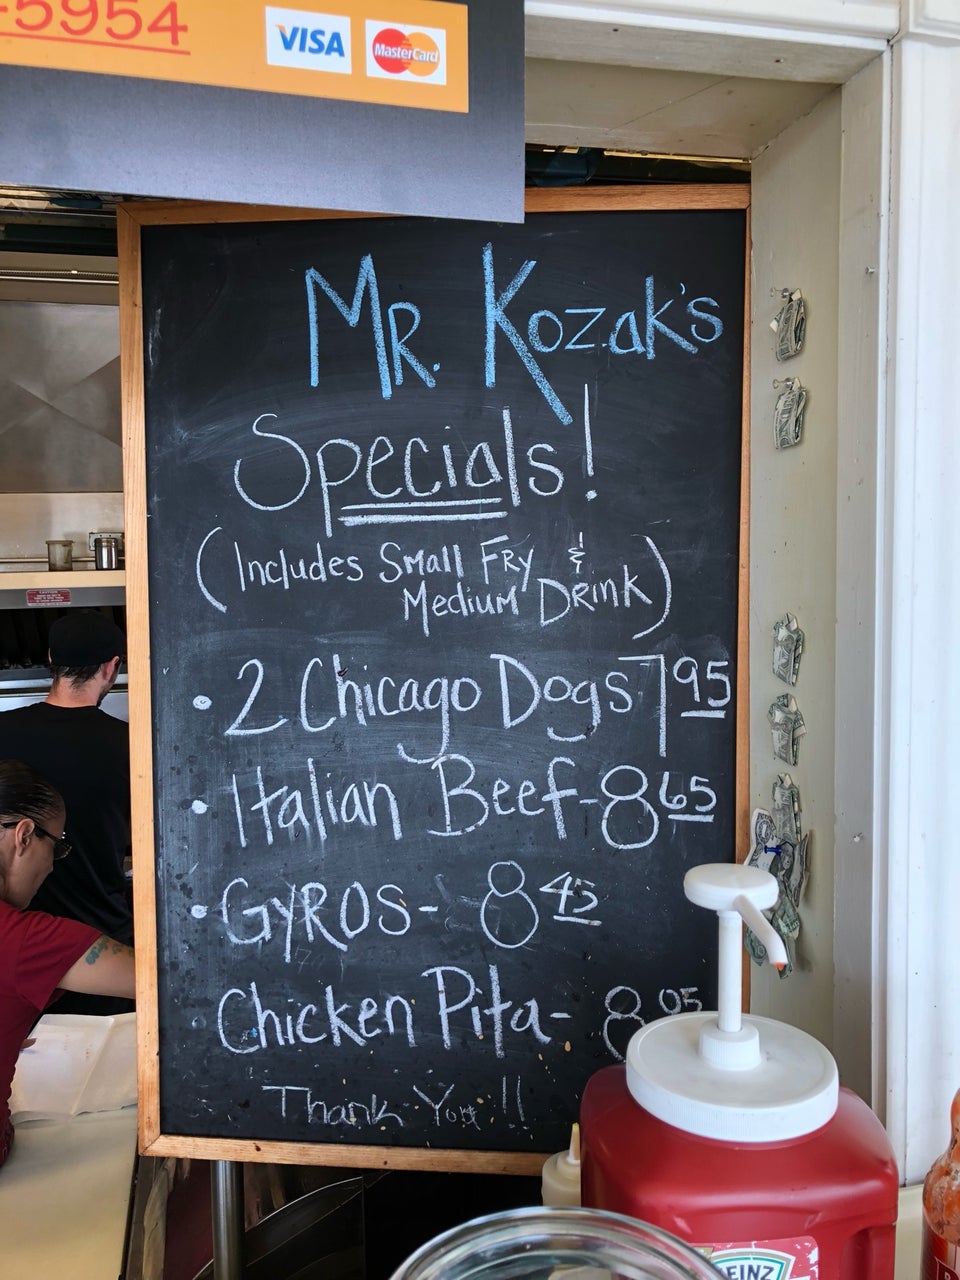 -5954
VISA
MasterCard
Mr. Kozak's
Specials!
(Includes Small Fry &
Medium Drink)
• 2 Chicago Dogs 7 95
• Italian Beef - 8 65
• GYROS - 8 45
• Chicken Pita - 8 05
Thank You!!
CAUTION
HEINZ